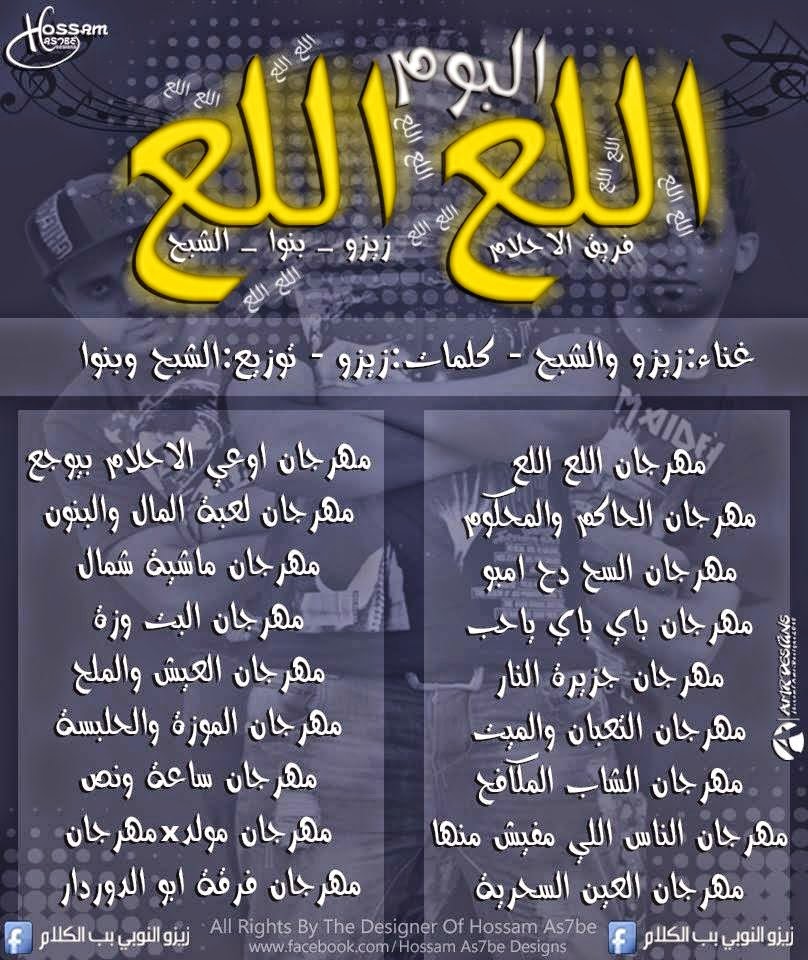 HOSSAM
AS7BE
DESIGNS
البوم
اللع اللع
اللع اللع
اللع اللع
اللع اللع
اللع اللع
اللع اللع
اللع اللع
اللع اللع
فريق الاحلام
زيزو _ بنوا _ الشبح
غناء:زيزو والشبح - كلمات:زيزو - توزيع:الشبح وبنوا
مهرجان اللع اللع
مهرجان الحاكم والمحكوم
مهرجان السح دح امبو
مهرجان باي باي ياحب
مهرجان جزيرة النار
مهرجان التعبان والميت
مهرجان الشاب المكافح
مهرجان الناس اللي مفيش منها
مهرجان العين السحرية
مهرجان اوعي الاحلام بيوجع
مهرجان لعبة المال والبنون
مهرجان ماشية شمال
مهرجان البت وزة
مهرجان العيش والملح
مهرجان الموزة والحلبسة
مهرجان ساعة ونص
مهرجان مولدxمهرجان
مهرجان فرقة ابو الدوردار
زيزو النوبي بب الكلام
All Rights By The Designer Of Hossam As7be
www.facebook.com/Hossam As7be Designs
زيزو النوبي بب الكلام